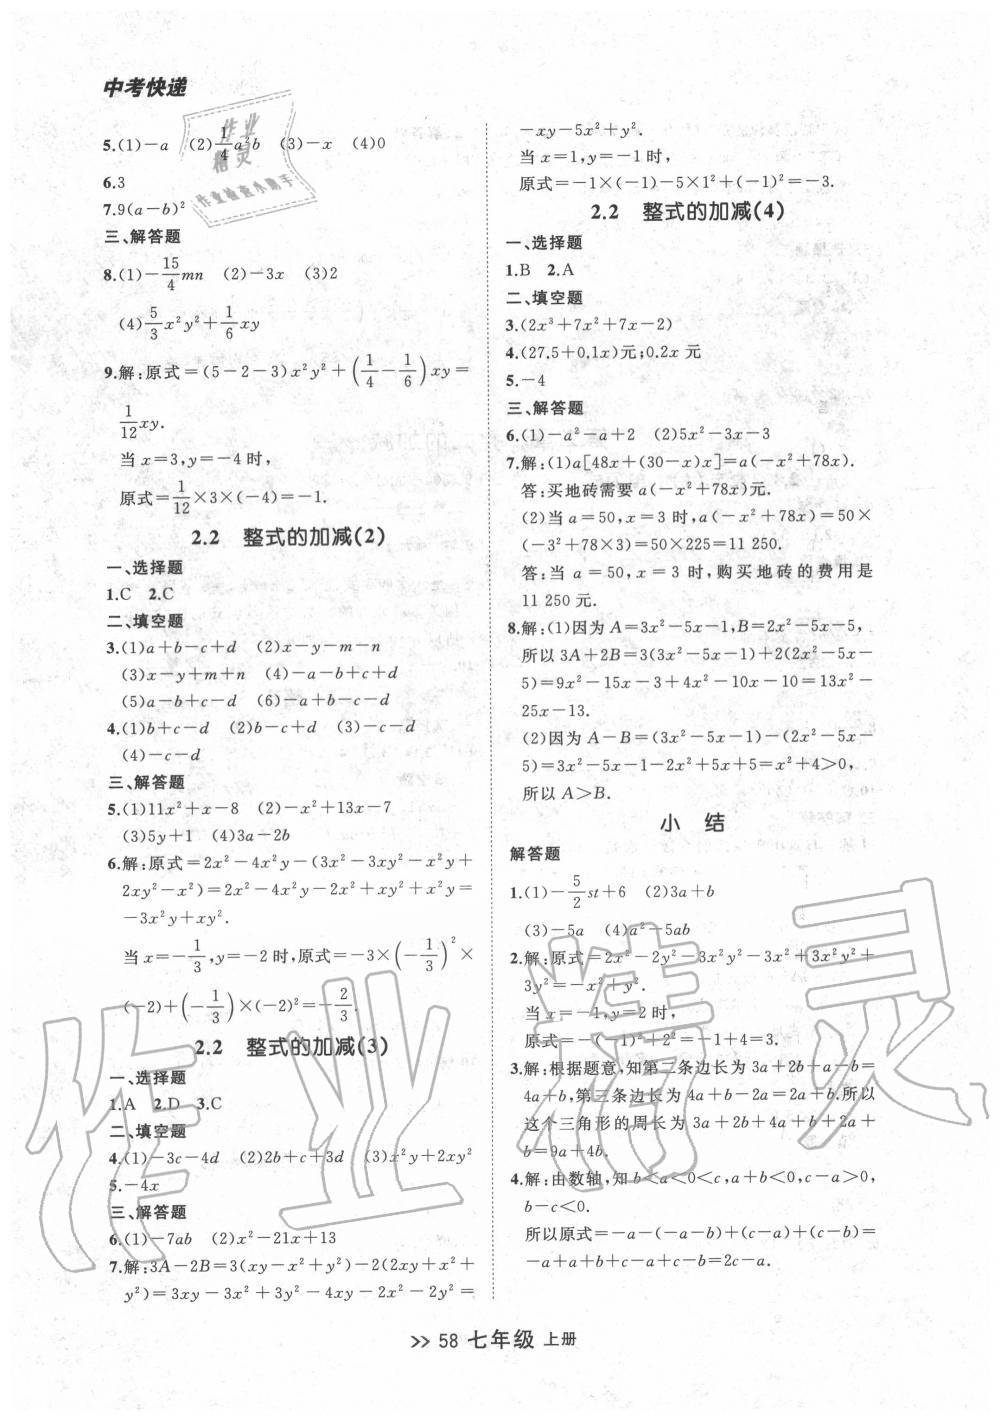 中考快递
5.(1)-a (2)\frac{1}{4}a²b (3)-x (4)0
6.3
7.9(a-b)²
三、解答题
8.(1)-\frac{15}{4}mn (2)-3x (3)2
(4)\frac{5}{3}x²y²+\frac{1}{6}xy
9.解:原式=(5-2-3)x²y²+(\frac{1}{4}-\frac{1}{6})xy=
\frac{1}{12}xy.
当x=3,y=-4时,
原式=\frac{1}{12}×3×(-4)=-1.
2.2 整式的加减(2)
一、选择题
1.C 2.C
二、填空题
3.(1)a+b-c+d (2)x-y-m-n
(3)x-y+m+n (4)-a-b+c+d
(5)a-b+c-d (6)-a+b-c-d
4.(1)b+c-d (2)b-c+d (3)-c-d
(4)-c-d
三、解答题
5.(1)11x²+x-8 (2)-x²+13x-7
(3)5y+1 (4)3a-2b
6.解:原式=2x²-4x²y-(3x²-3xy²-x²y+
2xy²-x²)=2x²-4x²y-2x²+xy²+x²y=
-3x²y+xy².
当x=-\frac{1}{3},y=-2时,原式=-3×(-\frac{1}{3})²×
(-2)+(-\frac{1}{3})×(-2)²=-\frac{2}{3}.
2.2 整式的加减(3)
一、选择题
1.A 2.D 3.C
二、填空题
4.(1)-3c-4d (2)2b+c+3d (3)x²y+2xy²
5.-4x
三、解答题
6.(1)-7ab (2)x²-21x+13
7.解:3A-2B=3(xy-x²+y²)-2(2xy+x²+
y²)=3xy-3x²+3y²-4xy-2x²-2y²=
-xy-5x²+y².
当x=1,y=-1时,
原式=-1×(-1)-5×1²+(-1)²=-3.
2.2 整式的加减(4)
一、选择题
1.B 2.A
二、填空题
3.(2x³+7x²+7x-2)
4.(27.5+0.1x)元;0.2x元
5.-4
三、解答题
6.(1)-a²-a+2 (2)5x²-3x-3
7.解:(1)a[48x+(30-x)x]=a(-x²+78x).
答:买地砖需要a(-x²+78x)元.
(2)当a=50,x=3时,a(-x²+78x)=50×
(-3²+78×3)=50×225=11 250.
答:当a=50,x=3时,购买地砖的费用是
11 250元.
8.解:(1)因为A=3x²-5x-1,B=2x²-5x-5,
所以3A+2B=3(3x²-5x-1)+2(2x²-5x-
5)=9x²-15x-3+4x²-10x-10=13x²-
25x-13.
(2)因为A-B=(3x²-5x-1)-(2x²-5x-
5)=3x²-5x-1-2x²+5x+5=x²+4>0,
所以A>B.
小 结
解答题
1.(1)-\frac{5}{2}st+6 (2)3a+b
(3)-5a (4)a²-5ab
2.解:原式=2x²-2y²-3x²y²-3x²+3x²y²+
3y²=-x²+y².
当x=-1,y=2时,
原式=-(-1)²+2²=-1+4=3.
3.解:根据题意,知第二条边长为3a+2b+a-b=
4a+b,第三条边长为4a+b-2a=2a+b.所以
这个三角形的周长为3a+2b+4a+b+2a+
b=9a+4b.
4.解:由数轴,知b<a<0<c,a+b<0,c-a>0,
b-c<0.
所以原式=-a-(-a-b)+(c-a)+(c-b)=
-a+a+b+c-a+c-b=2c-a.
>> 58 七年级 上册
作业
精灵
作业检查小助手
作业精灵